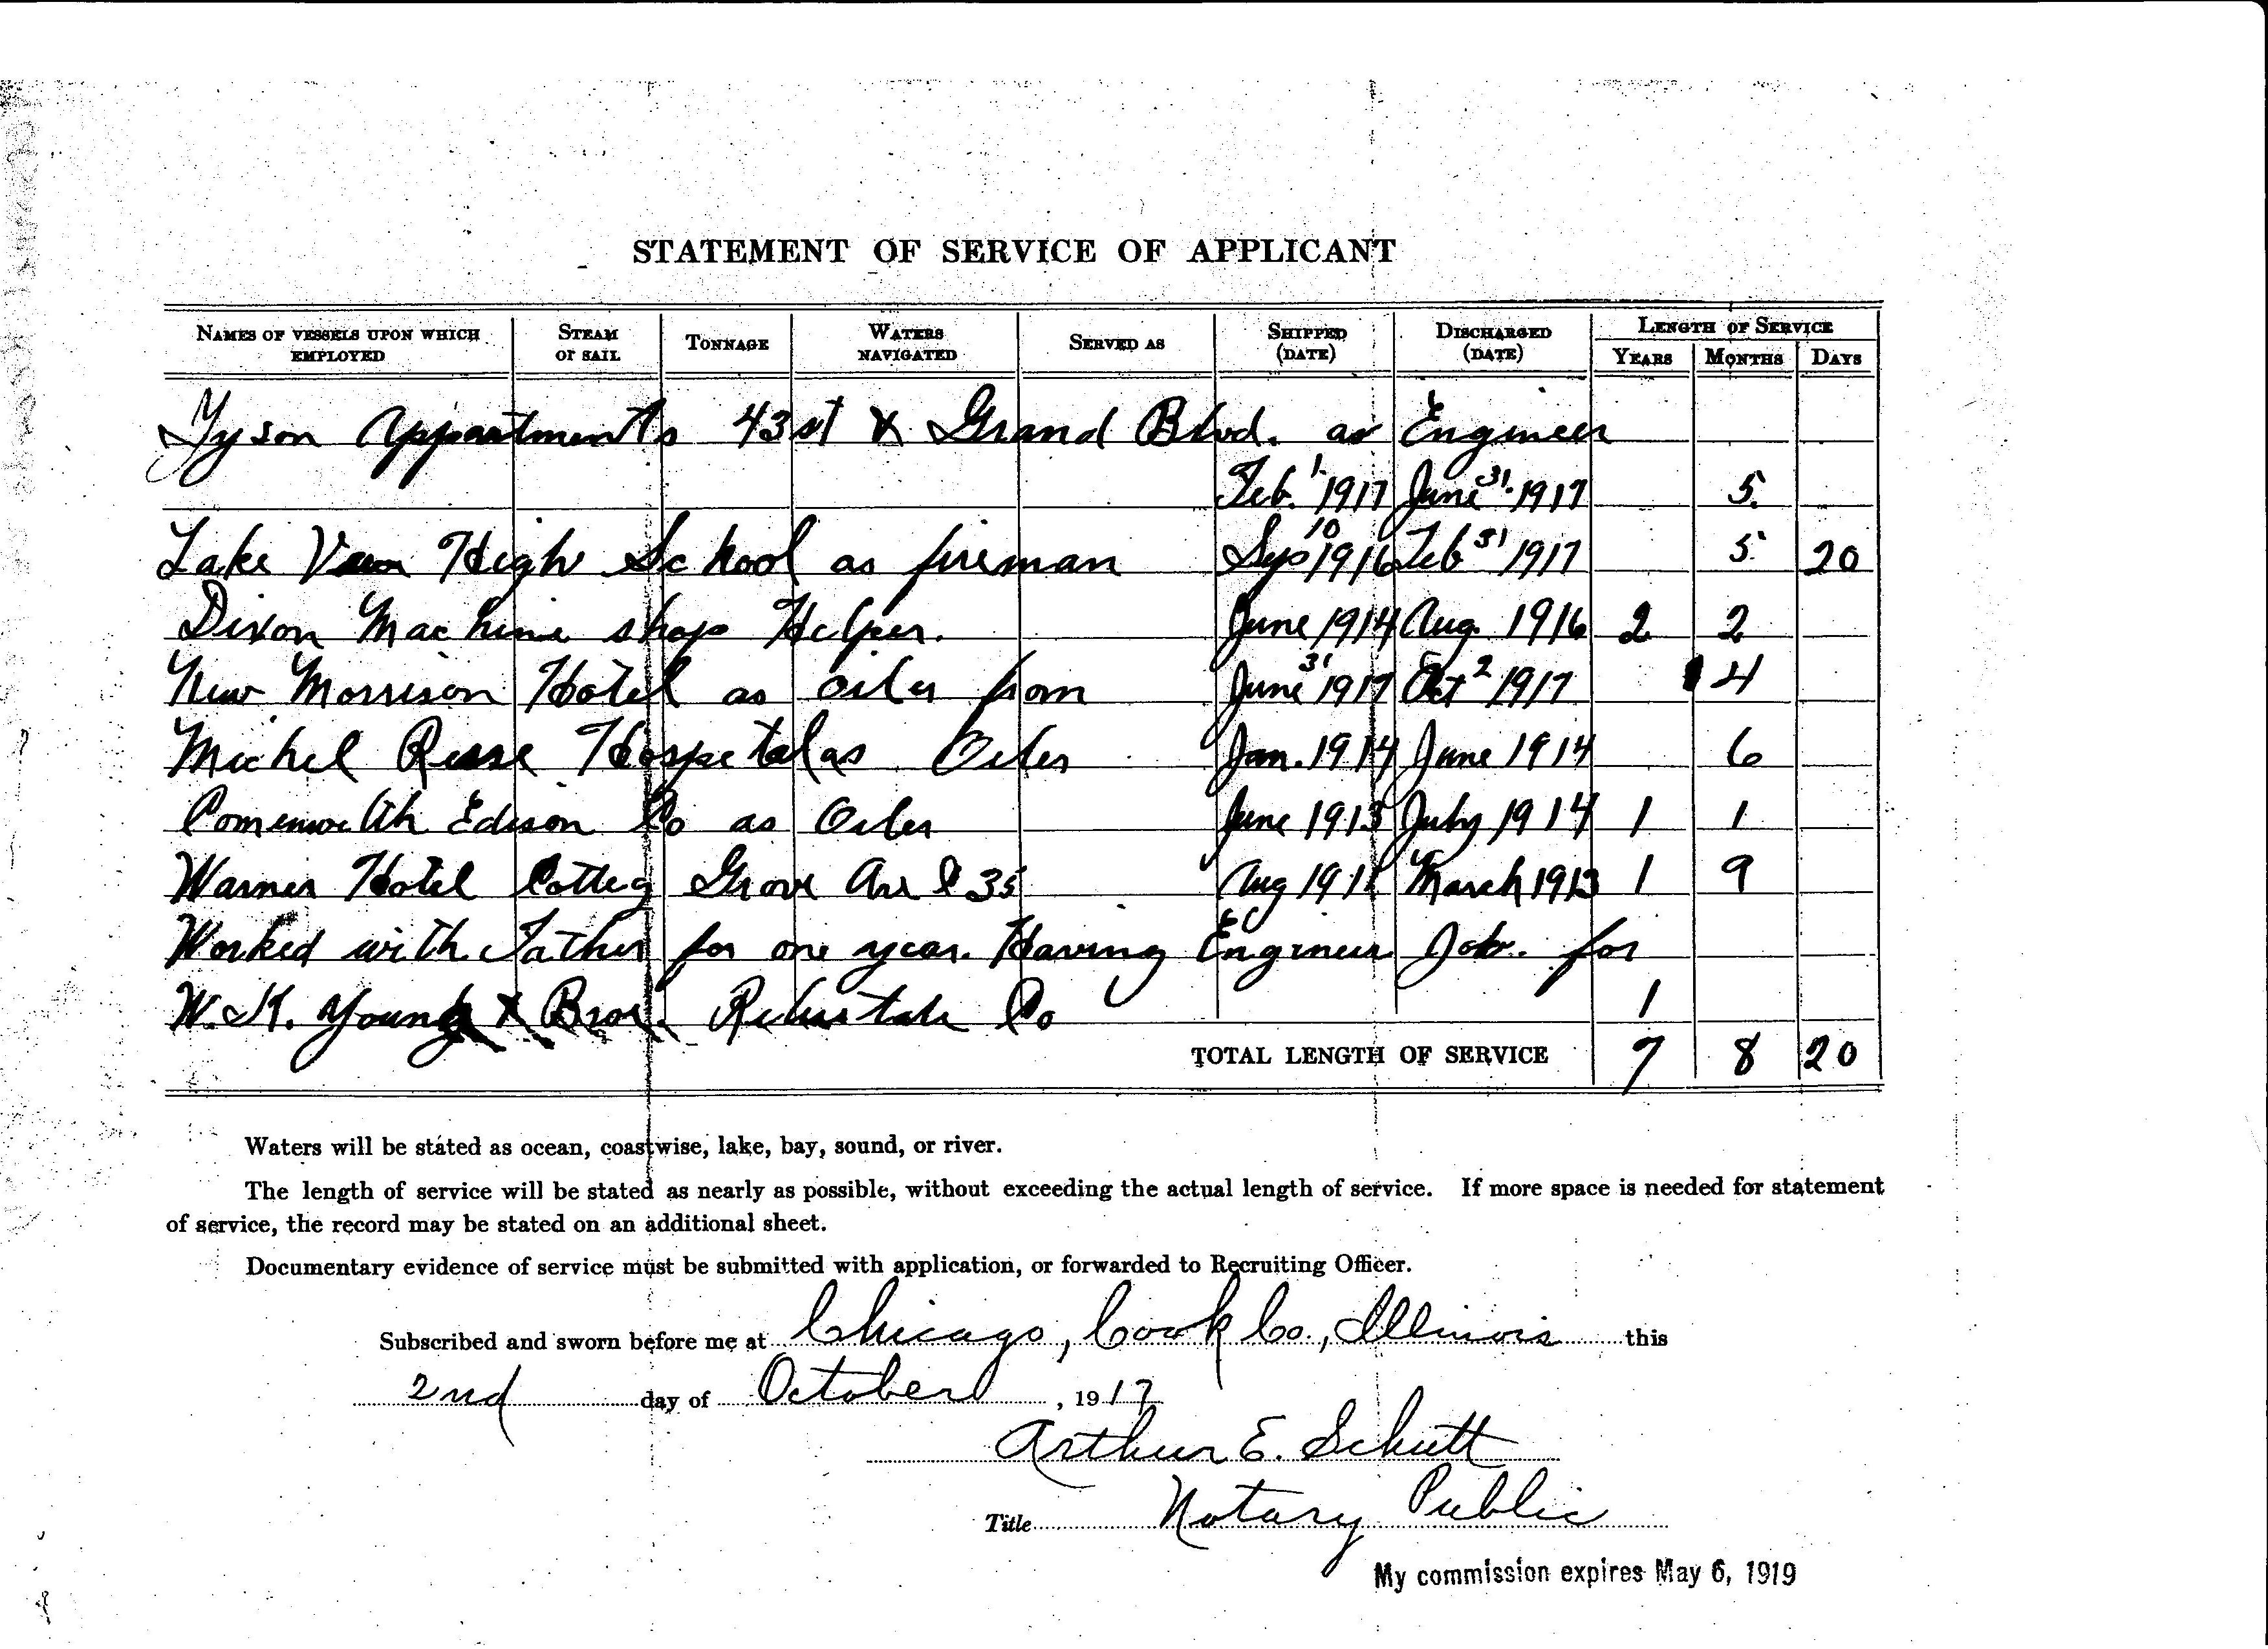 STATEMENT OF SERVICE OF APPLICANT
NAMES OF VESSELS UPON WHICH EMPLOYED STEAM or SAIL TONNAGE WATERS NAVIGATED SERVED AS SHIPPED (DATE) DISCHARGED (DATE) LENGTH OF SERVICE YEARS MONTHS DAYS
Tyson Appartments 43 st & Grand Blvd. as Engineer
Feb. 1. 1917 June 31. 1917 5.
Lake High School as fireman Sep 10 1916 Feb 31 1917 5 20
Dixon Machine shop Helper. June 1914 Aug. 1916 2 2
New Morrison Hotel as oiler from June 31 1917 Oct 2 1917 4
Michel Resse Hospetal as Oiler Jan. 1914 June 1914 6
Edison Co as Oiler June 1913 July 1914 1 1
Warner Hotel Cotteg Grove Ave & 35 Aug 1911 March 1913 1 9
Worked with Father for one year. Having Engineer Job. for
W. K. Young & Bros. Co 1
TOTAL LENGTH OF SERVICE 7 8 20
Waters will be stated as ocean, coastwise, lake, bay, sound, or river.
The length of service will be stated as nearly as possible, without exceeding the actual length of service. If more space is needed for statement
of service, the record may be stated on an additional sheet.
Documentary evidence of service must be submitted with application, or forwarded to Recruiting Officer.
Subscribed and sworn before me at Chicago, Cook Co., Illinois this
2nd day of October, 1917
Arthur E. Schutt
Title Notary Public
My commission expires May 6, 1919